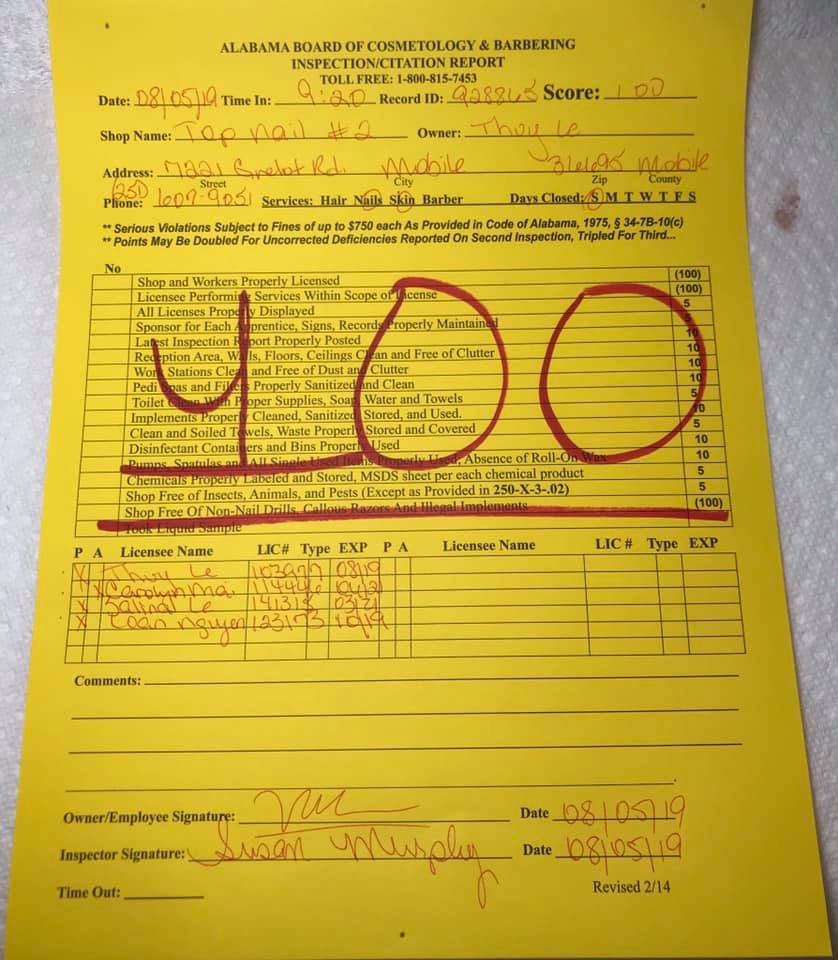 ALABAMA BOARD OF COSMETOLOGY & BARBERING
INSPECTION/CITATION REPORT
TOLL FREE: 1-800-815-7453
Date: 08/05/19 Time In: 9:20 Record ID: 928865 Score: 100
Shop Name: Top Nail #2 Owner: Thuy Le
Address: 7221 Grelot Rd. Mobile 36695 Mobile
Street City Zip County
Phone: (251) 607-9051 Services: Hair Nails Skin Barber Days Closed: S M T W T F S
** Serious Violations Subject to Fines of up to $750 each As Provided in Code of Alabama, 1975, § 34-7B-10(c)
** Points May Be Doubled For Uncorrected Deficiencies Reported On Second Inspection, Tripled For Third...
No
Shop and Workers Properly Licensed (100)
Licensee Performing Services Within Scope of License (100)
All Licenses Properly Displayed 5
Sponsor for Each Apprentice, Signs, Records Properly Maintained 5
Latest Inspection Report Properly Posted 10
Reception Area, Walls, Floors, Ceilings Clean and Free of Clutter 10
Work Stations Clean and Free of Dust and Clutter 10
Pedi Spas and Filters Properly Sanitized and Clean 10
Toilet Clean With Proper Supplies, Soap, Water and Towels 5
Implements Properly Cleaned, Sanitized, Stored, and Used. 10
Clean and Soiled Towels, Waste Properly Stored and Covered 5
Disinfectant Containers and Bins Properly Used 10
Pumps, Spatulas and All Single Used Items Properly Used, Absence of Roll-On Wax 10
Chemicals Properly Labeled and Stored, MSDS sheet per each chemical product 5
Shop Free of Insects, Animals, and Pests (Except as Provided in 250-X-3-.02) 5
Shop Free Of Non-Nail Drills, Callous Razors And Illegal Implements (100)
Took Liquid Sample
100
P A Licensee Name LIC# Type EXP P A Licensee Name LIC # Type EXP
X Thuy Le 103977 08/19
X Carolynh Mai 114446
X Le 03/21
X Loan Nguyen 123173 10/19
Comments:
Owner/Employee Signature: Date 08/05/19
Inspector Signature: Susan Murphy Date 08/05/19
Time Out:
Revised 2/14